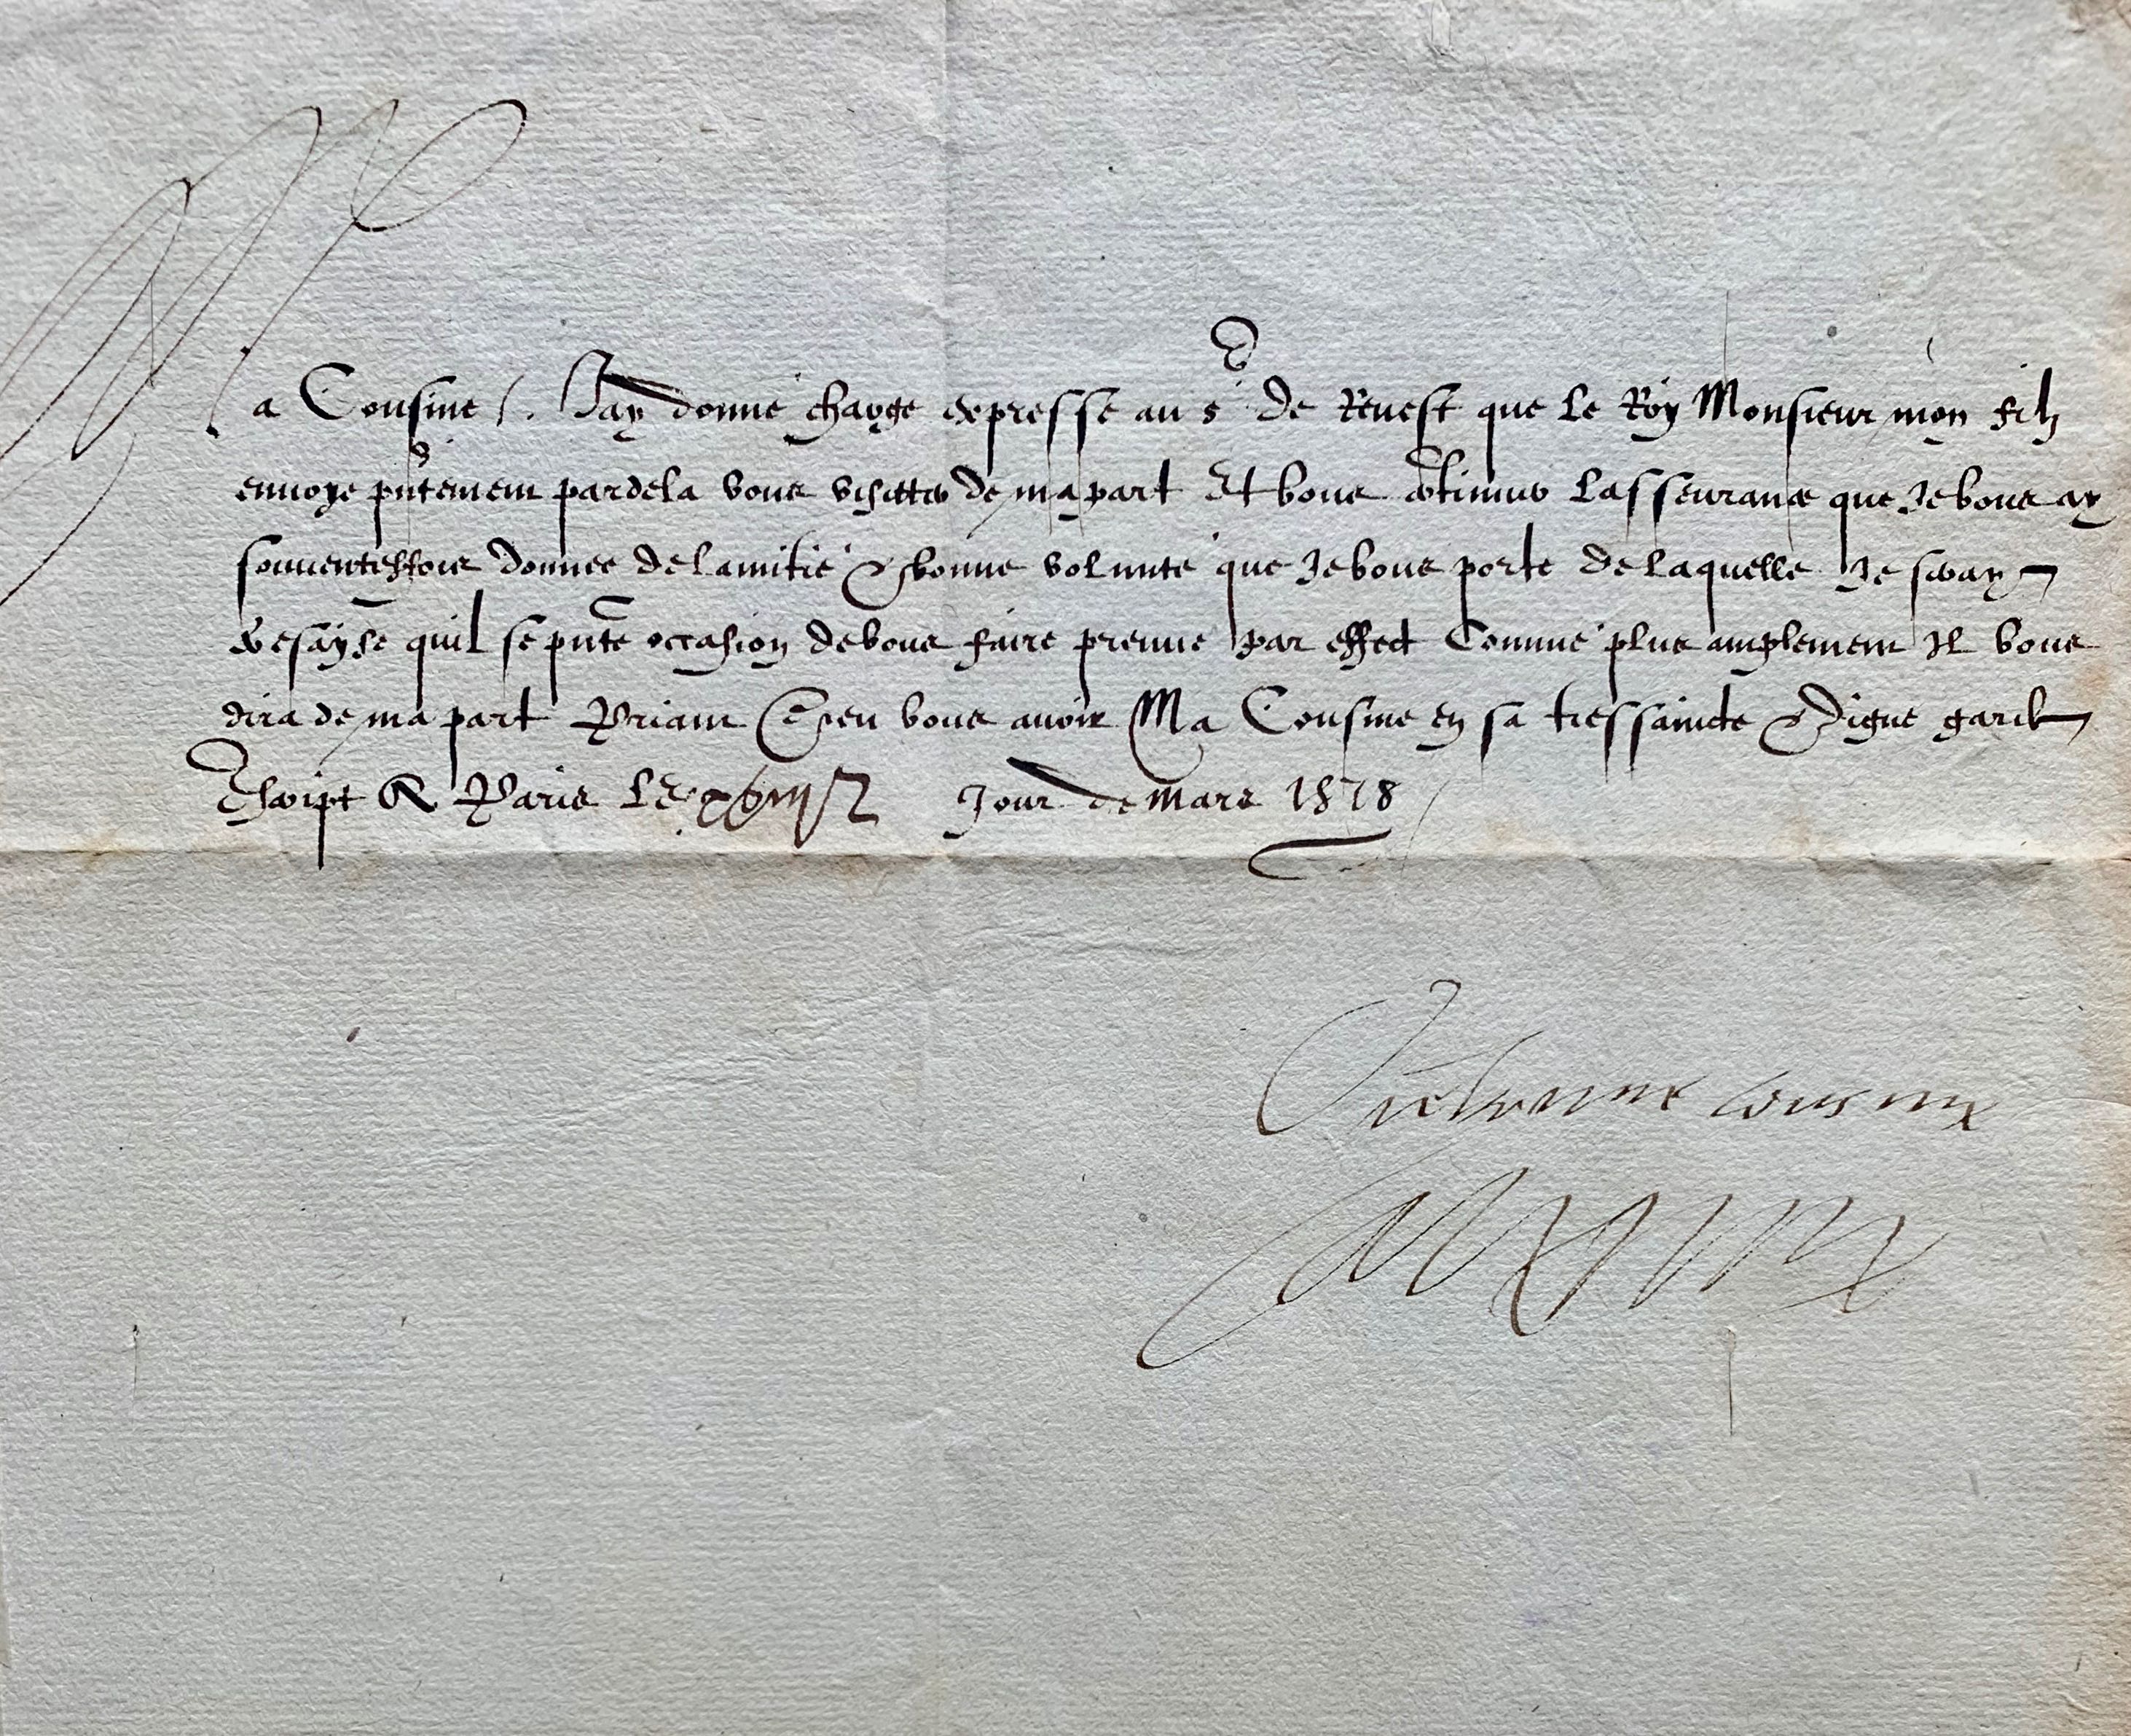 Ma Cousine /. Jay donné charge expresse au sʳ de Revest que le Roy Monsieur mon filz
envoye pñtement pardela vous visitter de ma part Et vous cõtinuer lasseurance que Je vous ay
souventesfois donnee de lamitié & bonne volunte que Je vous porte de laquelle Je seray
tresayse quil se pñte occasion de vous faire preuve par effect Comme plus amplement Il vous
dira de ma part Priant Dieu vous avoir Ma Cousine en sa tressaincte & digne garde
Escript A Paris le Jour de mars 1578
Vr̃e bonne cousine
Caterine